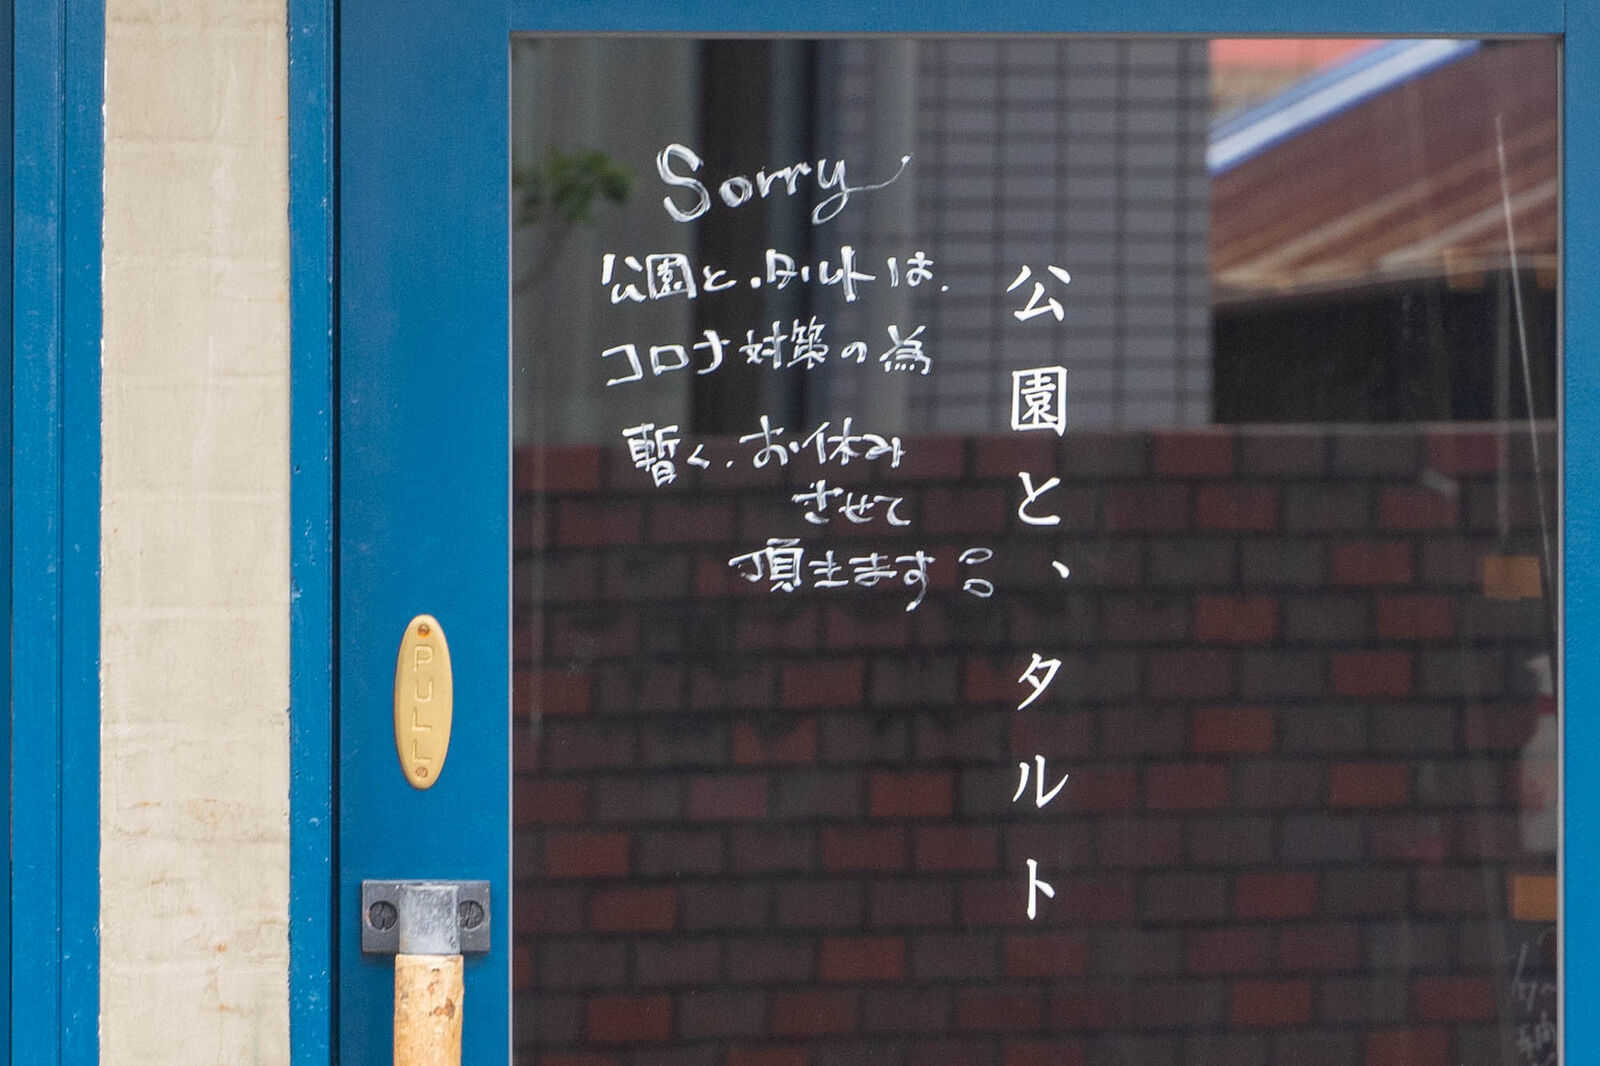 Sorry
公園と、タルトは、
コロナ対策の為
暫く、お休み
させて
頂きます。。
公園と、タルト
PULL